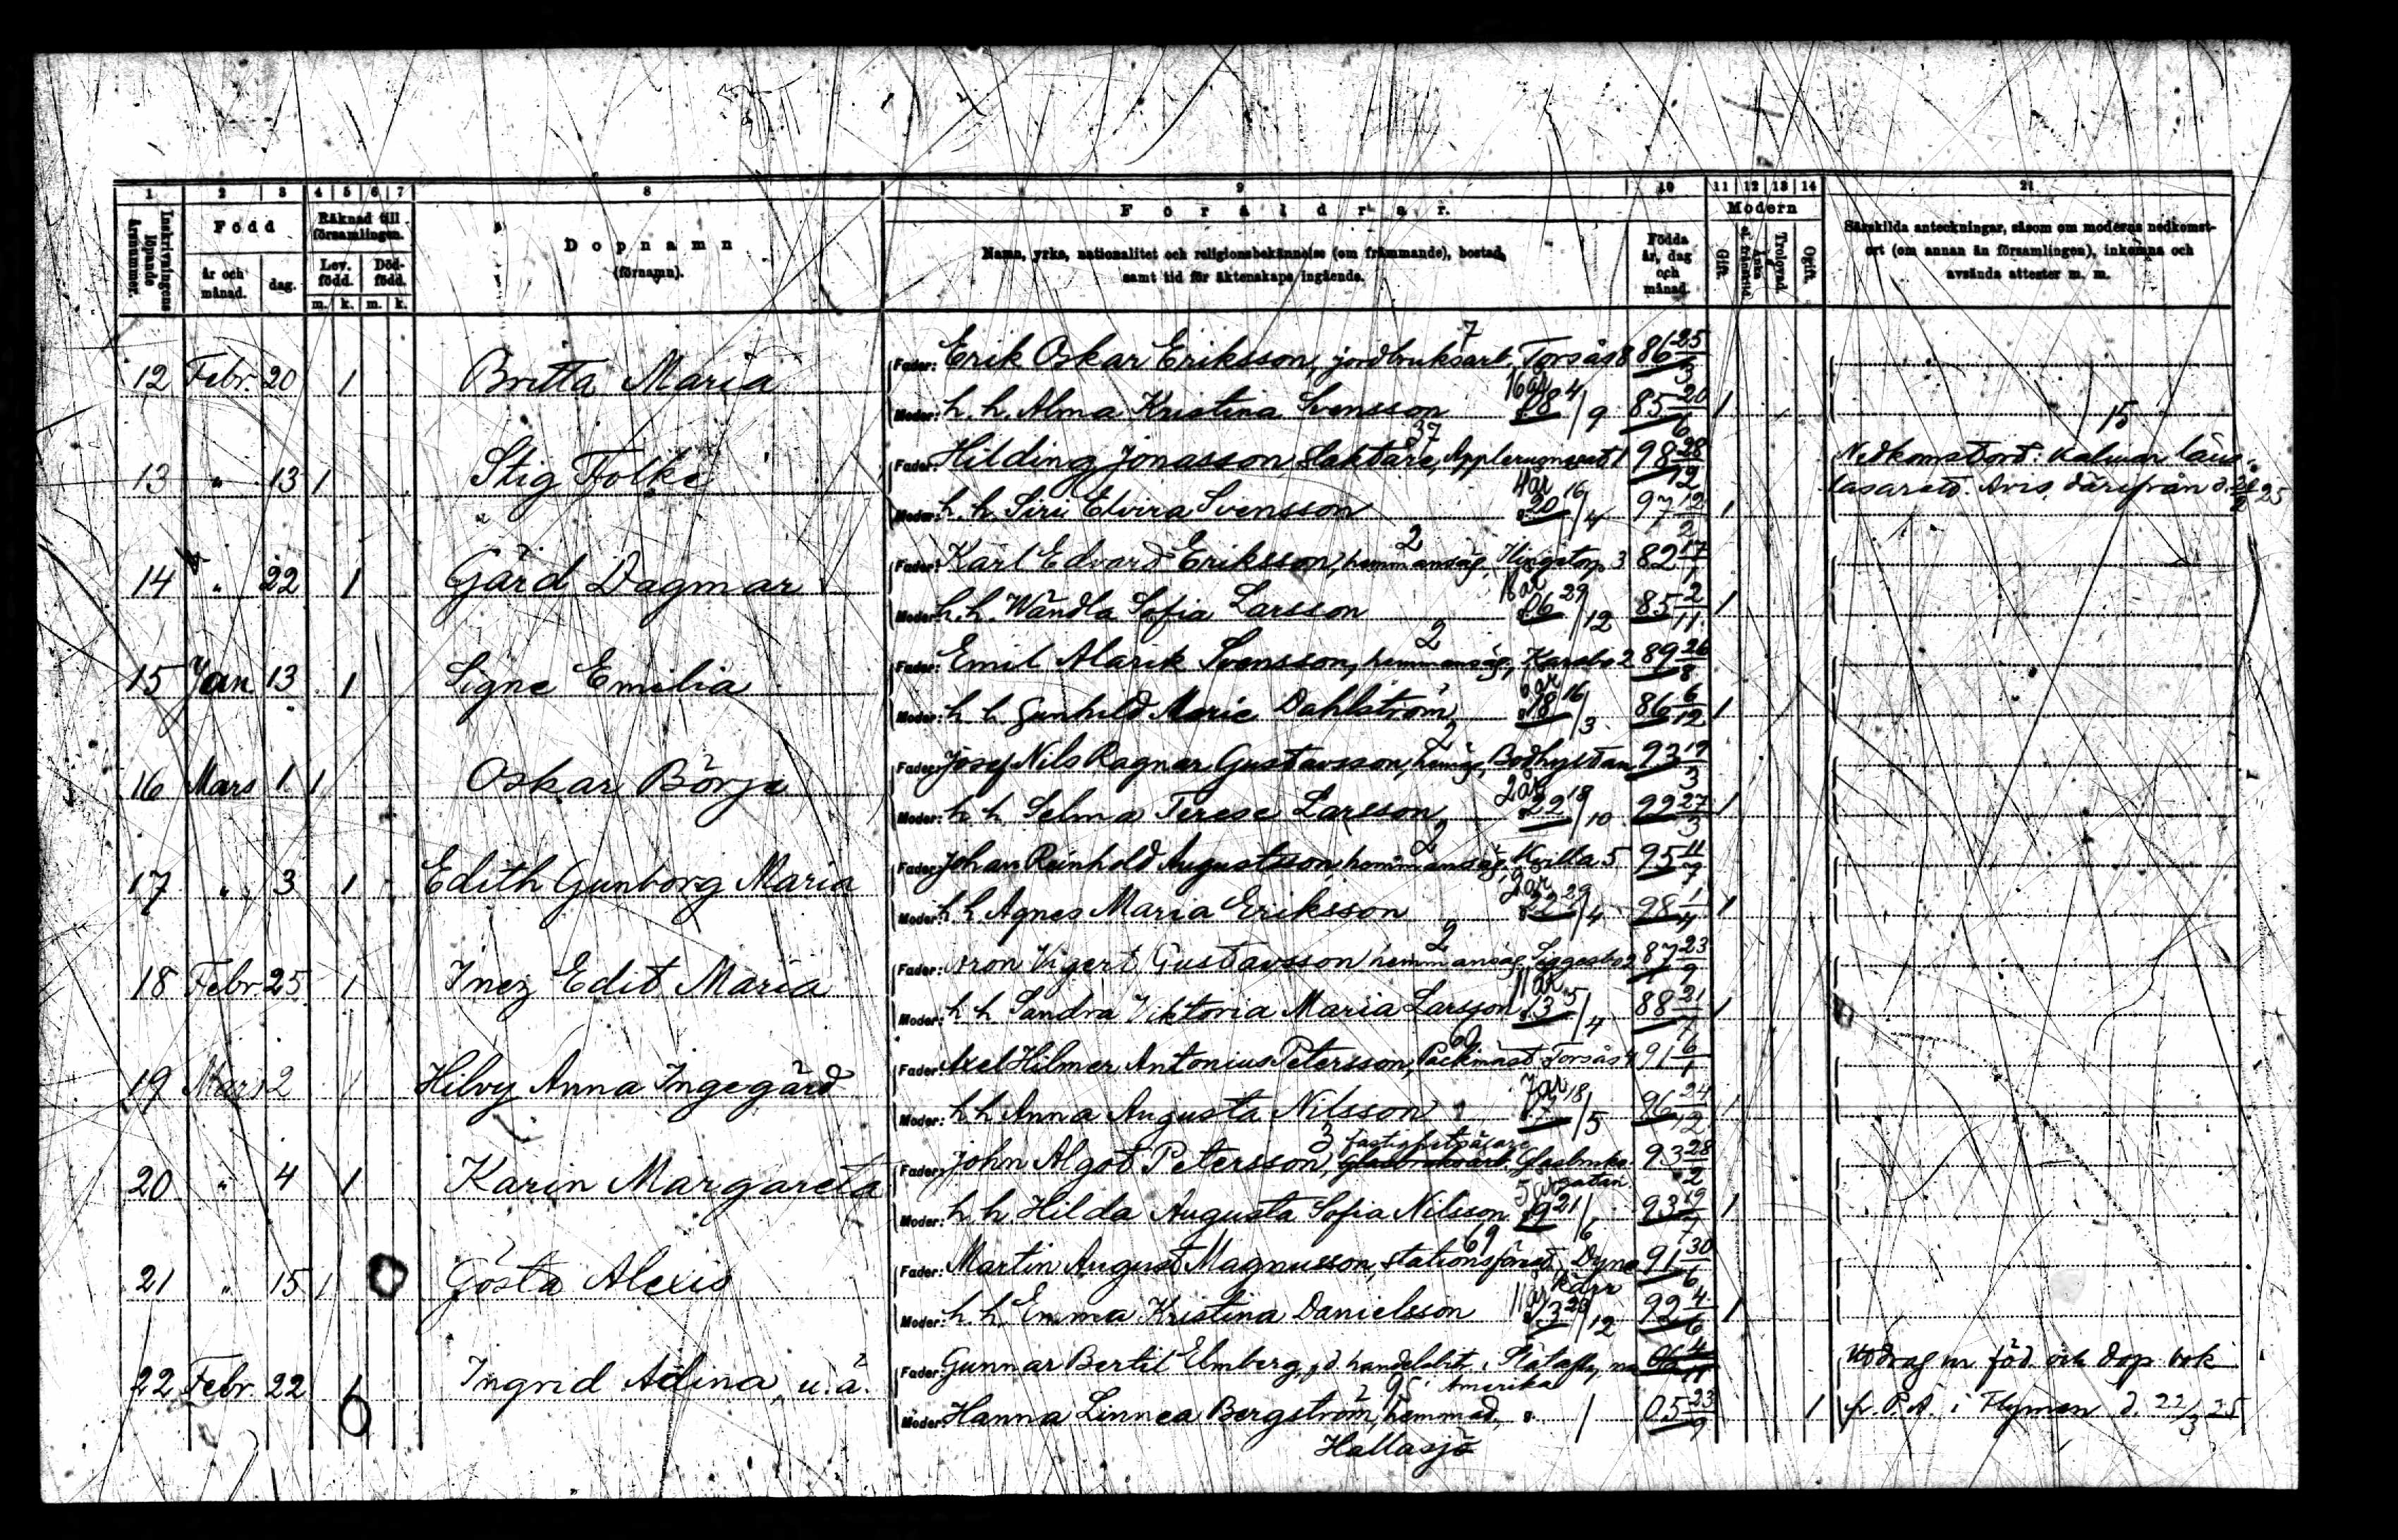 1 2 3 4 5 6 7 8 9 10 11 12 13 14 21
Inskrivningens löpande årsnummer.
Född
år och månad. dag.
Räknad till församlingen.
Lev. född. Död- född.
m. k. m. k.
Dopnamn
(förnamn).
Föräldrar.
Namn, yrke, nationalitet och religionsbekännelse (om främmande), bostad,
samt tid för äktenskaps ingående.
Födda år, dag och månad.
Modern
Gift. Trolovad. Ogift.
Särskilda anteckningar, såsom om moderns nedkomst-
ort (om annan än församlingen), inkomna och
avsända attester m. m.
7
12 Febr. 20 1 Britta Maria Fader: Erik Oskar Eriksson, jordbruksarb. Torsås 8 86 25/3
16 år
Moder: h. h. Alma Kristina Svensson 08 4/9 85 20/6 1
37 15
13 " 13 1 Stig Folke Fader: Hilding Jonasson Slaktare, 1 98 28/12 Nedkomstort: Kalmar läns-
lasarett. Avis. därifrån d. 25
4 år
Moder: h. h. Siri Elvira Svensson 20 16/4 97 12/2 1
2
14 " 22 1 Gärd Dagmar Fader: Karl Edvard Eriksson, hemmansäg. 3 82 17/1
18 år
Moder: h. h. Wandla Sofia Larsson 06 29/12 85 2/11 1
2
15 Jan 13 1 Signe Emilia Fader: Emil Alarik Svensson, hemmansäg, Karsbo 2 89 26/8
6 år
Moder: h. h. Gunhild Marie Dahlström 18 16/3 86 6/12 1
2
16 Mars 1 1 Oskar Börje Fader: Josef Nils Ragnar Gustavsson, hemäg, Bodhyltan 93 19/3
2 år
Moder: h. h. Selma Terese Larsson 22 18/10 22 27/3 1
2
17 " 3 1 Edith Gunborg Maria Fader: Johan Reinhold Augustsson hemmansäg. Kvilla 5 95 11/7
2 år
Moder: h. h. Agnes Maria Eriksson 22 29/4 98 1/4 1
2
18 Febr. 25 1 Inez Edit Maria Fader: Aron Vigert Gustavsson hemmansäg. Siggesbo 2 87 23/9
11 år
Moder: h. h. Sandra Viktoria Maria Larsson 13 5/4 88 21/7 1
62
19 Mars 2 1 Hilvy Anna Ingegärd Fader: Axel Hilmer Antonius Petersson, Packmäst. Torsås 4 91 6/1
7 år
Moder: h. h. Anna Augusta Nilsson 17 18/5 96 24/12 1
3 fastighetsägare
20 " 4 1 Karin Margareta Fader: John Algot Petersson, Glasbruks- 93 28/2
5 år gatan.
Moder: h. h. Hilda Augusta Sofia Nilsson 19 21/6 93 19/7 1
69
21 " 15 1 Gösta Alexis Fader: Martin August Magnusson, stationsförest. Dyne- 91 30/6
11 år kärr
Moder: h. h. Emma Kristina Danielsson 13 28/12 92 4/6 1
22 Febr 22 1 Ingrid Adina, u. ä. Fader: Gunnar Bertil Elmberg, f. d. handelsbitr. i Slätafly, nu 06 4/11 Utdrag ur föd. och dop bok
95 i Amerika
Moder: Hanna Linnea Bergström, hemmad., 05 23/9 1 fr. P.A. i Flymen d. 22/3 25
Hallasjö